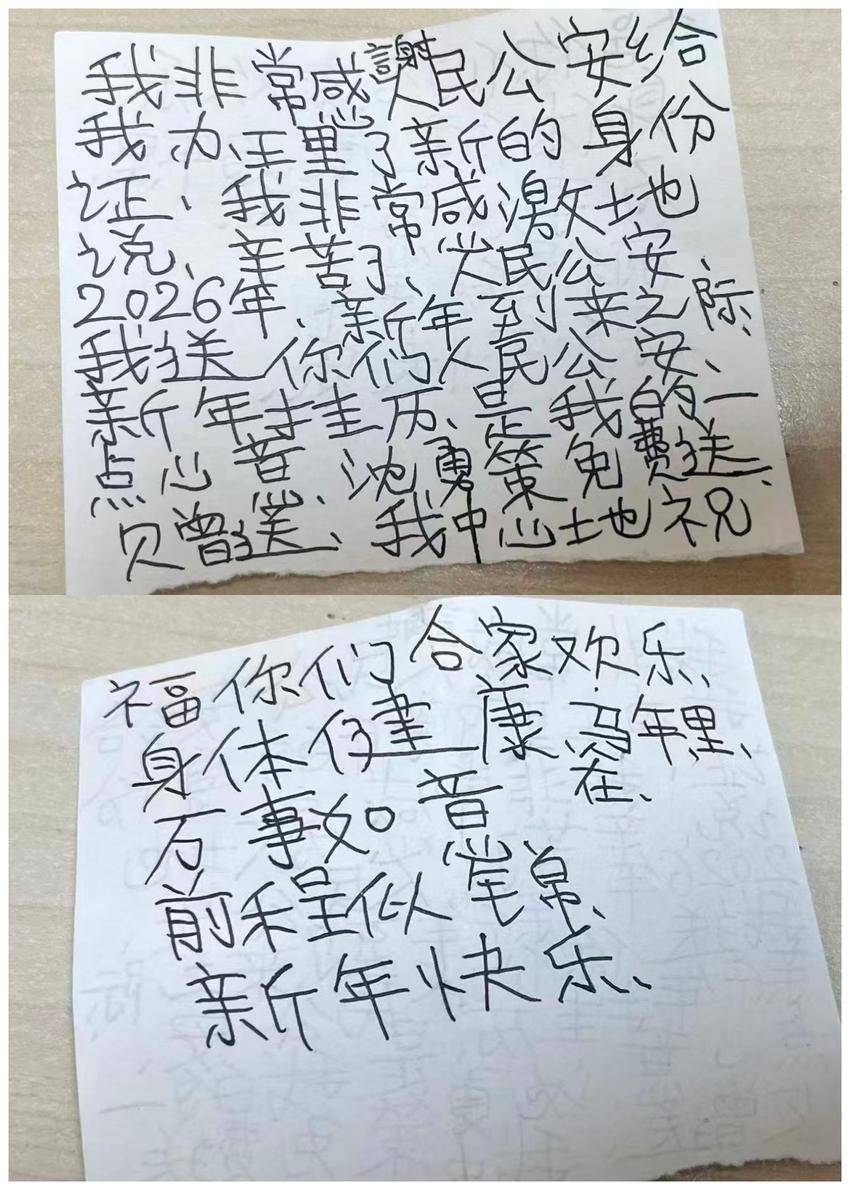 我非常感謝人民公安给
我办理了新的身份
证、我非常感激土地
说、辛苦了、人民公安、
2026年、新年到来之际、
我送你们人民公安、
新年挂历、是我的一
点心意、沈勇策免费送、
赠送、我中心土地祝
福你们合家欢乐、
身体健康、马年里、
在、
万事如意
前程似锦、
新年快乐、